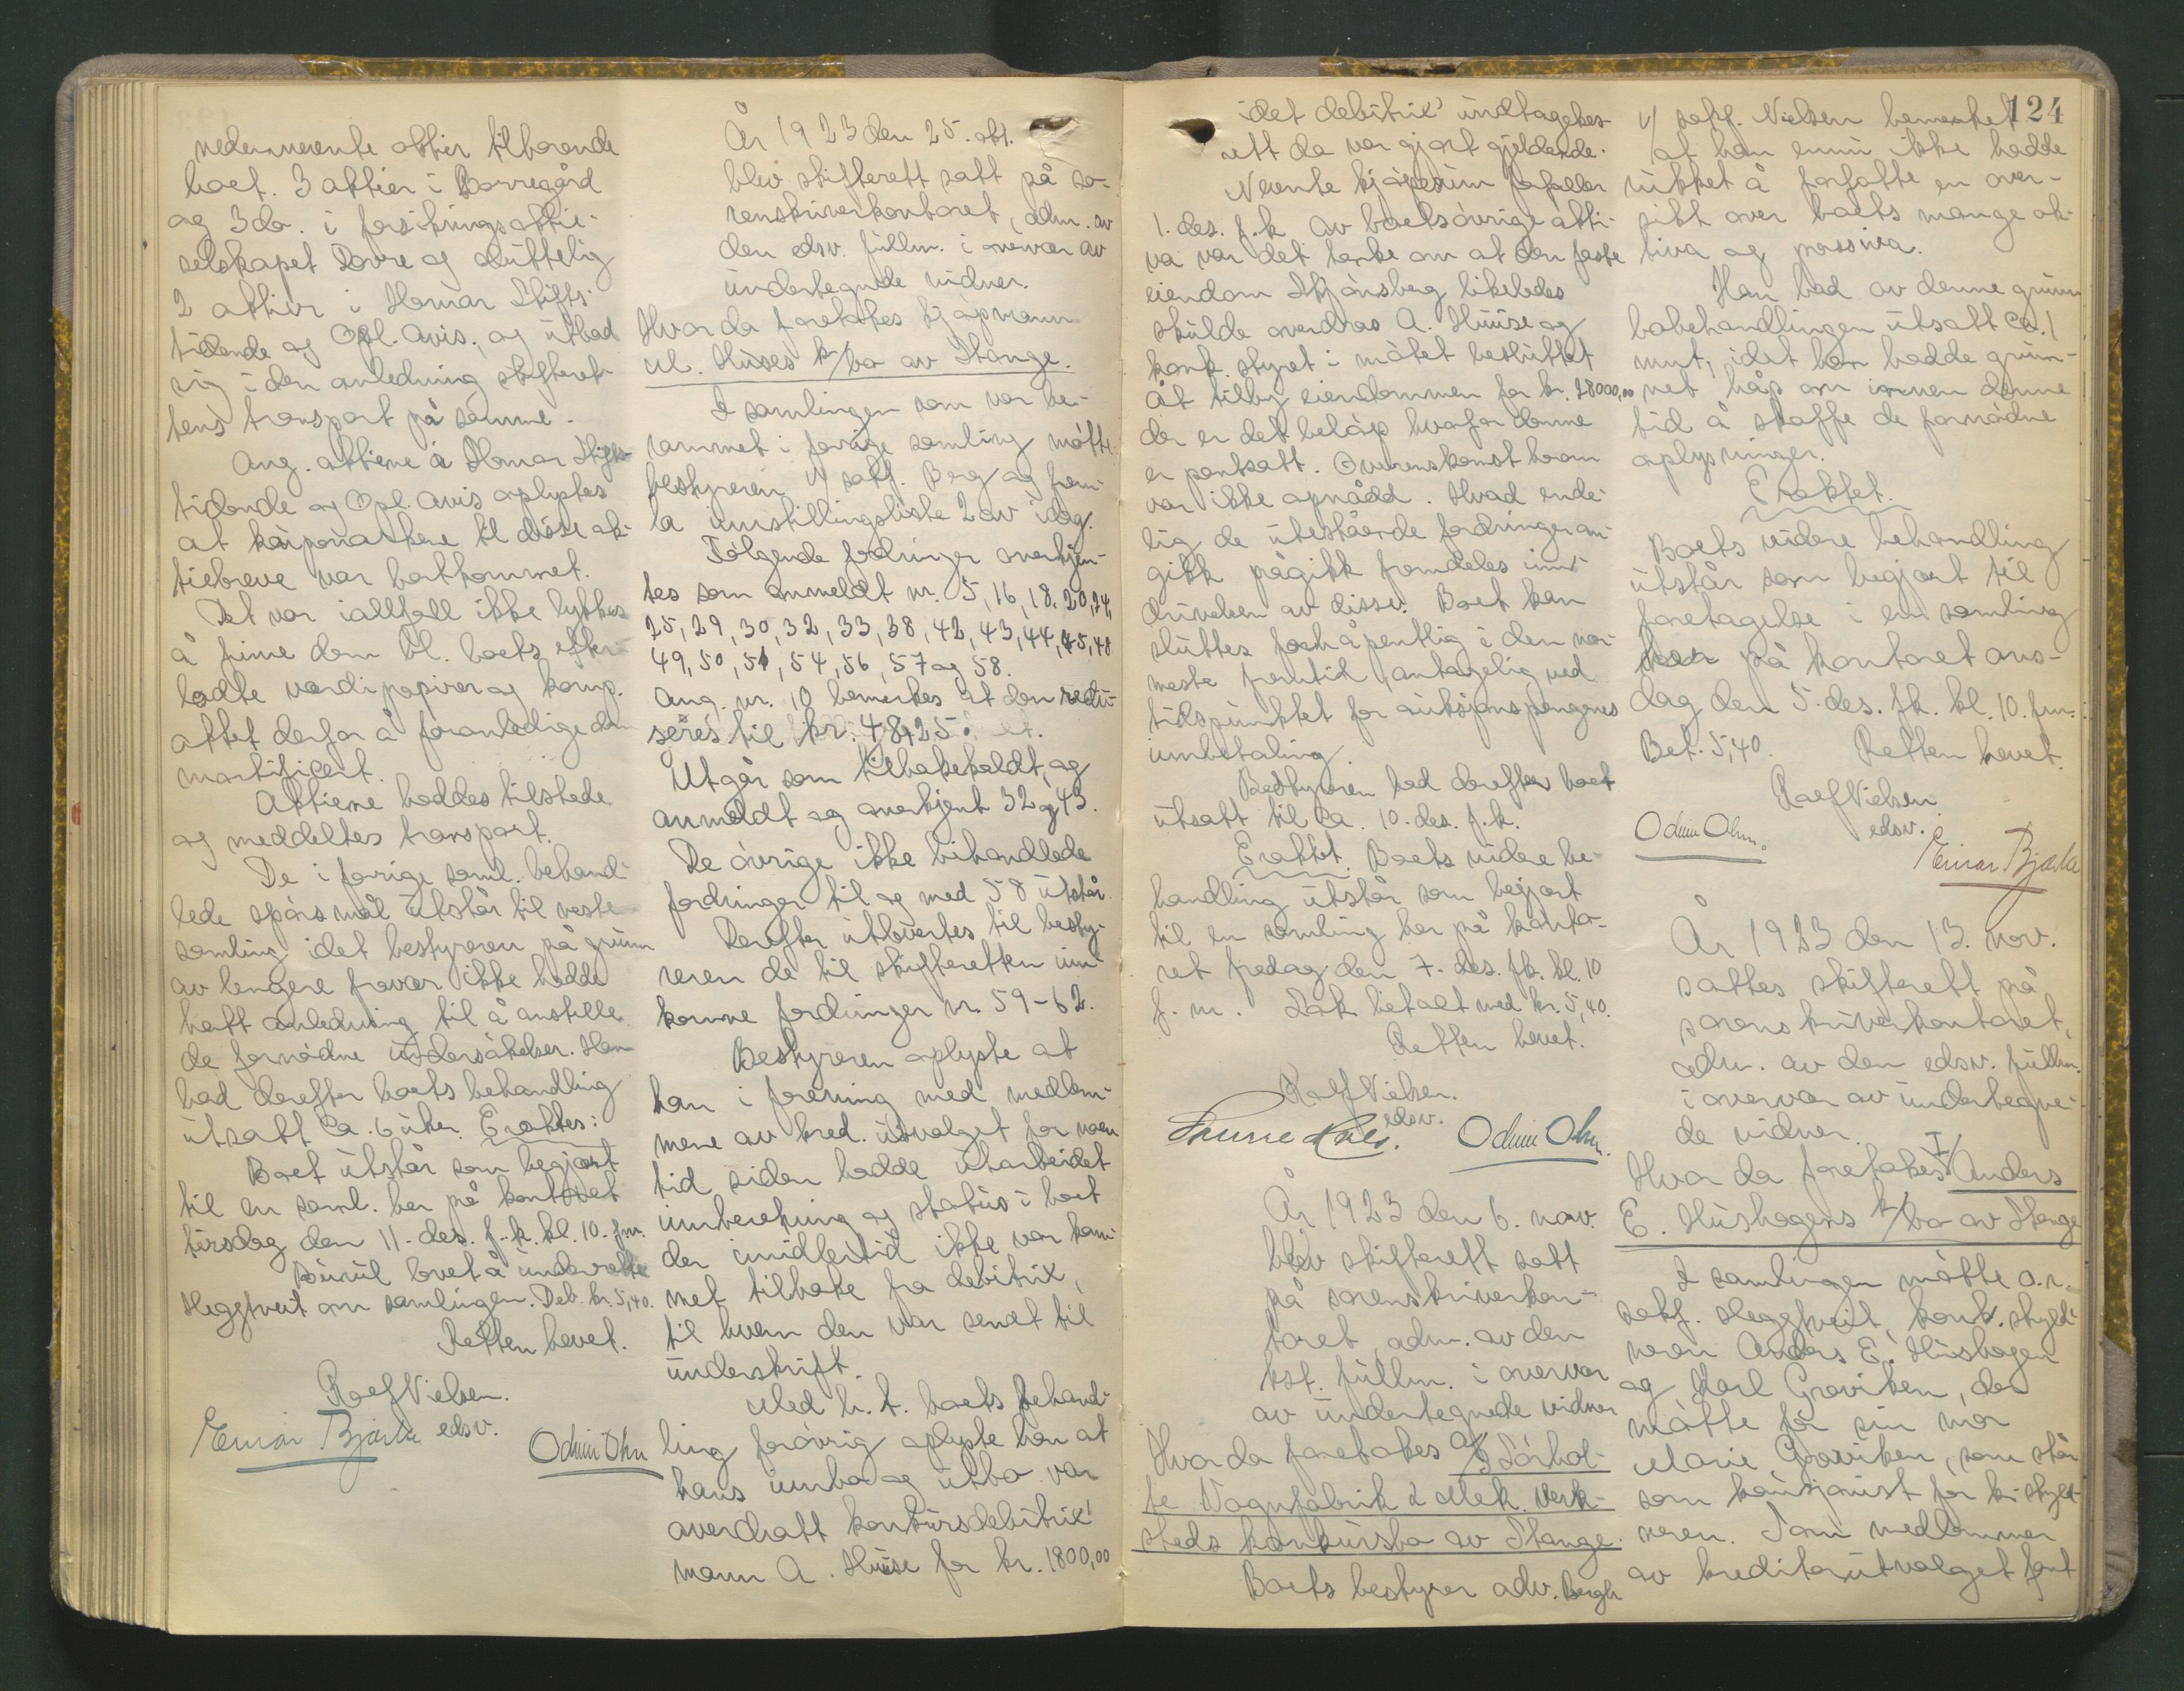 nedennevnte aktier tilhørende
boet. 3 aktier i Borregård
og 3 do. i forsikringsaktie-
selskapet Dovre og sluttelig
2 aktier i Hamar Stifts-
tidende og Opl. Avis, og utbad
sig i den anledning skifteret-
tens transport på samme.
Ang. aktiene i Hamar Stifts-
tidende og Opl. Avis oplystes
at kuponarkene til disse ak-
tiebreve var bortkommet.
Det var iallfall ikke lykkes
å finne dem bl. boets efter-
ladte værdipapirer og komp.
aktet derfor å foranledige dem
mortificert.
Aktiene haddes tilstede
og meddeltes transport.
De i forrige saml. behand-
lede spørsmål utstår til neste
samling idet bestyreren på grunn
av lengere fravær ikke hadde
hatt anledning til å anstille
de fornødne undersøkelser. Han
bad derefter boets behandling
utsatt ca. 6 uker. Eraktes:
Boet utstår som begjært
til en saml. her på kontoret
tirsdag den 11. des. f.k. kl. 10. fm.
lovet å underrette
Heggtveit om samlingen. Deb. kr. 5,40.
Retten hevet.
Rolf Nielsen.
edsv.
Einar Bjørke
Odvin Ohm
År 1923 den 25. okt.
blev skifterett satt på so-
renskriverkontoret, adm. av
den edsv. fullm. i overvær av
undertegnede vidner.
Hvor da foretokes kjøpmann
M. Huses k/bo av Stange.
I samlingen som var be-
rammet i forrige samling møtte
bestyreren v/ sakf. Berg og frem-
la innstillingsliste 2 av idag.
Følgende fordringer anerkjen-
tes som anmeldt nr. 5, 16, 18, 20, 24,
25, 29, 30, 32, 33, 38, 42, 43, 44, 45, 48
49, 50, 51, 54, 56, 57 og 58.
Ang. nr. 10 bemerkes at den redu-
seres til kr. 48,25.
Utgår som tilbakekaldt, og
anmeldt og anerkjent 32 og 43.
De øvrige ikke bihandlede
fordringer til og med 58 utstår.
Derefter utlevertes til besty-
reren de til skifteretten inn-
komne fordringer nr. 59-62.
Bestyreren oplyste at
han i forening med medlem-
mene av kred. utvalget for noen
tid siden hadde utarbeidet
innberetning og status i boet
der imidlertid ikke var kom-
met tilbake fra debitrix,
til hvem den var sendt til
underskrift.
Med h. t. boets behand-
ling forøvrig oplyste han at
hans innbo og utbo var
overdratt konkursdebitrix'
mann A. Huse for kr. 1800,00
idet debitrix' undtagelses-
rett da var gjort gjeldende.
Nevnte kjøpesum forfaller
1. des. f.k. Av boets øvrige akti-
va var det tanke om at den faste
eiendom Skjønsberg likeledes
skulde overdras A. Huuse og
konk. styret i møtet besluttet
åt tilby eiendommen for kr. 28000,00
der er det beløp hvorfor denne
er pantsatt. Overenskomst herom
var ikke opnådd. Hvad ende-
lig de utestående fordringer an-
gikk pågikk fremdeles inn-
drivelsen av disse. Boet kan
sluttes forhåpentlig i den nær-
meste fremtid, antagelig ved
tidspunktet for auksjonspengenes
innbetaling.
Bestyreren bad derefter boet
utsatt til ca. 10. des. f.k.
Eraktet. Boets videre be-
handling utstår som begjært
til en samling her på konto-
ret fredag den 7. des. fk. kl. 10
f. m. Sak betalt med kr. 5,40.
Retten hevet.
Rolf Nielsen.
edsv.
Odvin Ohm.
År 1923 den 6. nov.
blev skifterett satt
på sorenskriverkon-
toret adm. av den
kst. fullm. i overvær
av undertegnede vidner
Hvor da foretokes a/s Sørhol-
te Vognfabrik & Mek. Verk-
steds konkursbo av Stange.
Boets bestyrer adv. Bergh
v/ sakf. Nielsen bemerket
at han ennu ikke hadde
rukket å forfatte en over-
sikt over boets mange ak-
tiva og passiva.
Han bad av denne grunn
bobehandlingen utsatt ca. 1
mnt, idet han hadde grun-
net håp om innen denne
tid å skaffe de fornødne
oplysninger.
Eraktet.
Boets videre behandling
utstår som begjært til
foretagelse i en samling
her på kontoret ons-
dag den 5. des. fk. kl. 10. fm.
Bet. 5,40. Retten hevet.
Rolf Nielsen
edsv.
Odvin Ohm.
Einar Bjørke
År 1923 den 13. nov.
sattes skifterett på
sorenskriverkontoret,
adm. av den edsv. fullm.
i overvær av undertegne-
de vidner.
Hvor da foretokes I/ Anders
E. Hushagens k/bo av Stange
I samlingen møtte o.r.
sakf. Heggtveit, konk. skyld-
neren Anders E. Hushagen
og Karl Graviken, der
møtte for sin mor
Marie Graviken, som står
som kausjonist for k. skyld-
neren. Som medlemmer
av kreditorutvalget fant
124